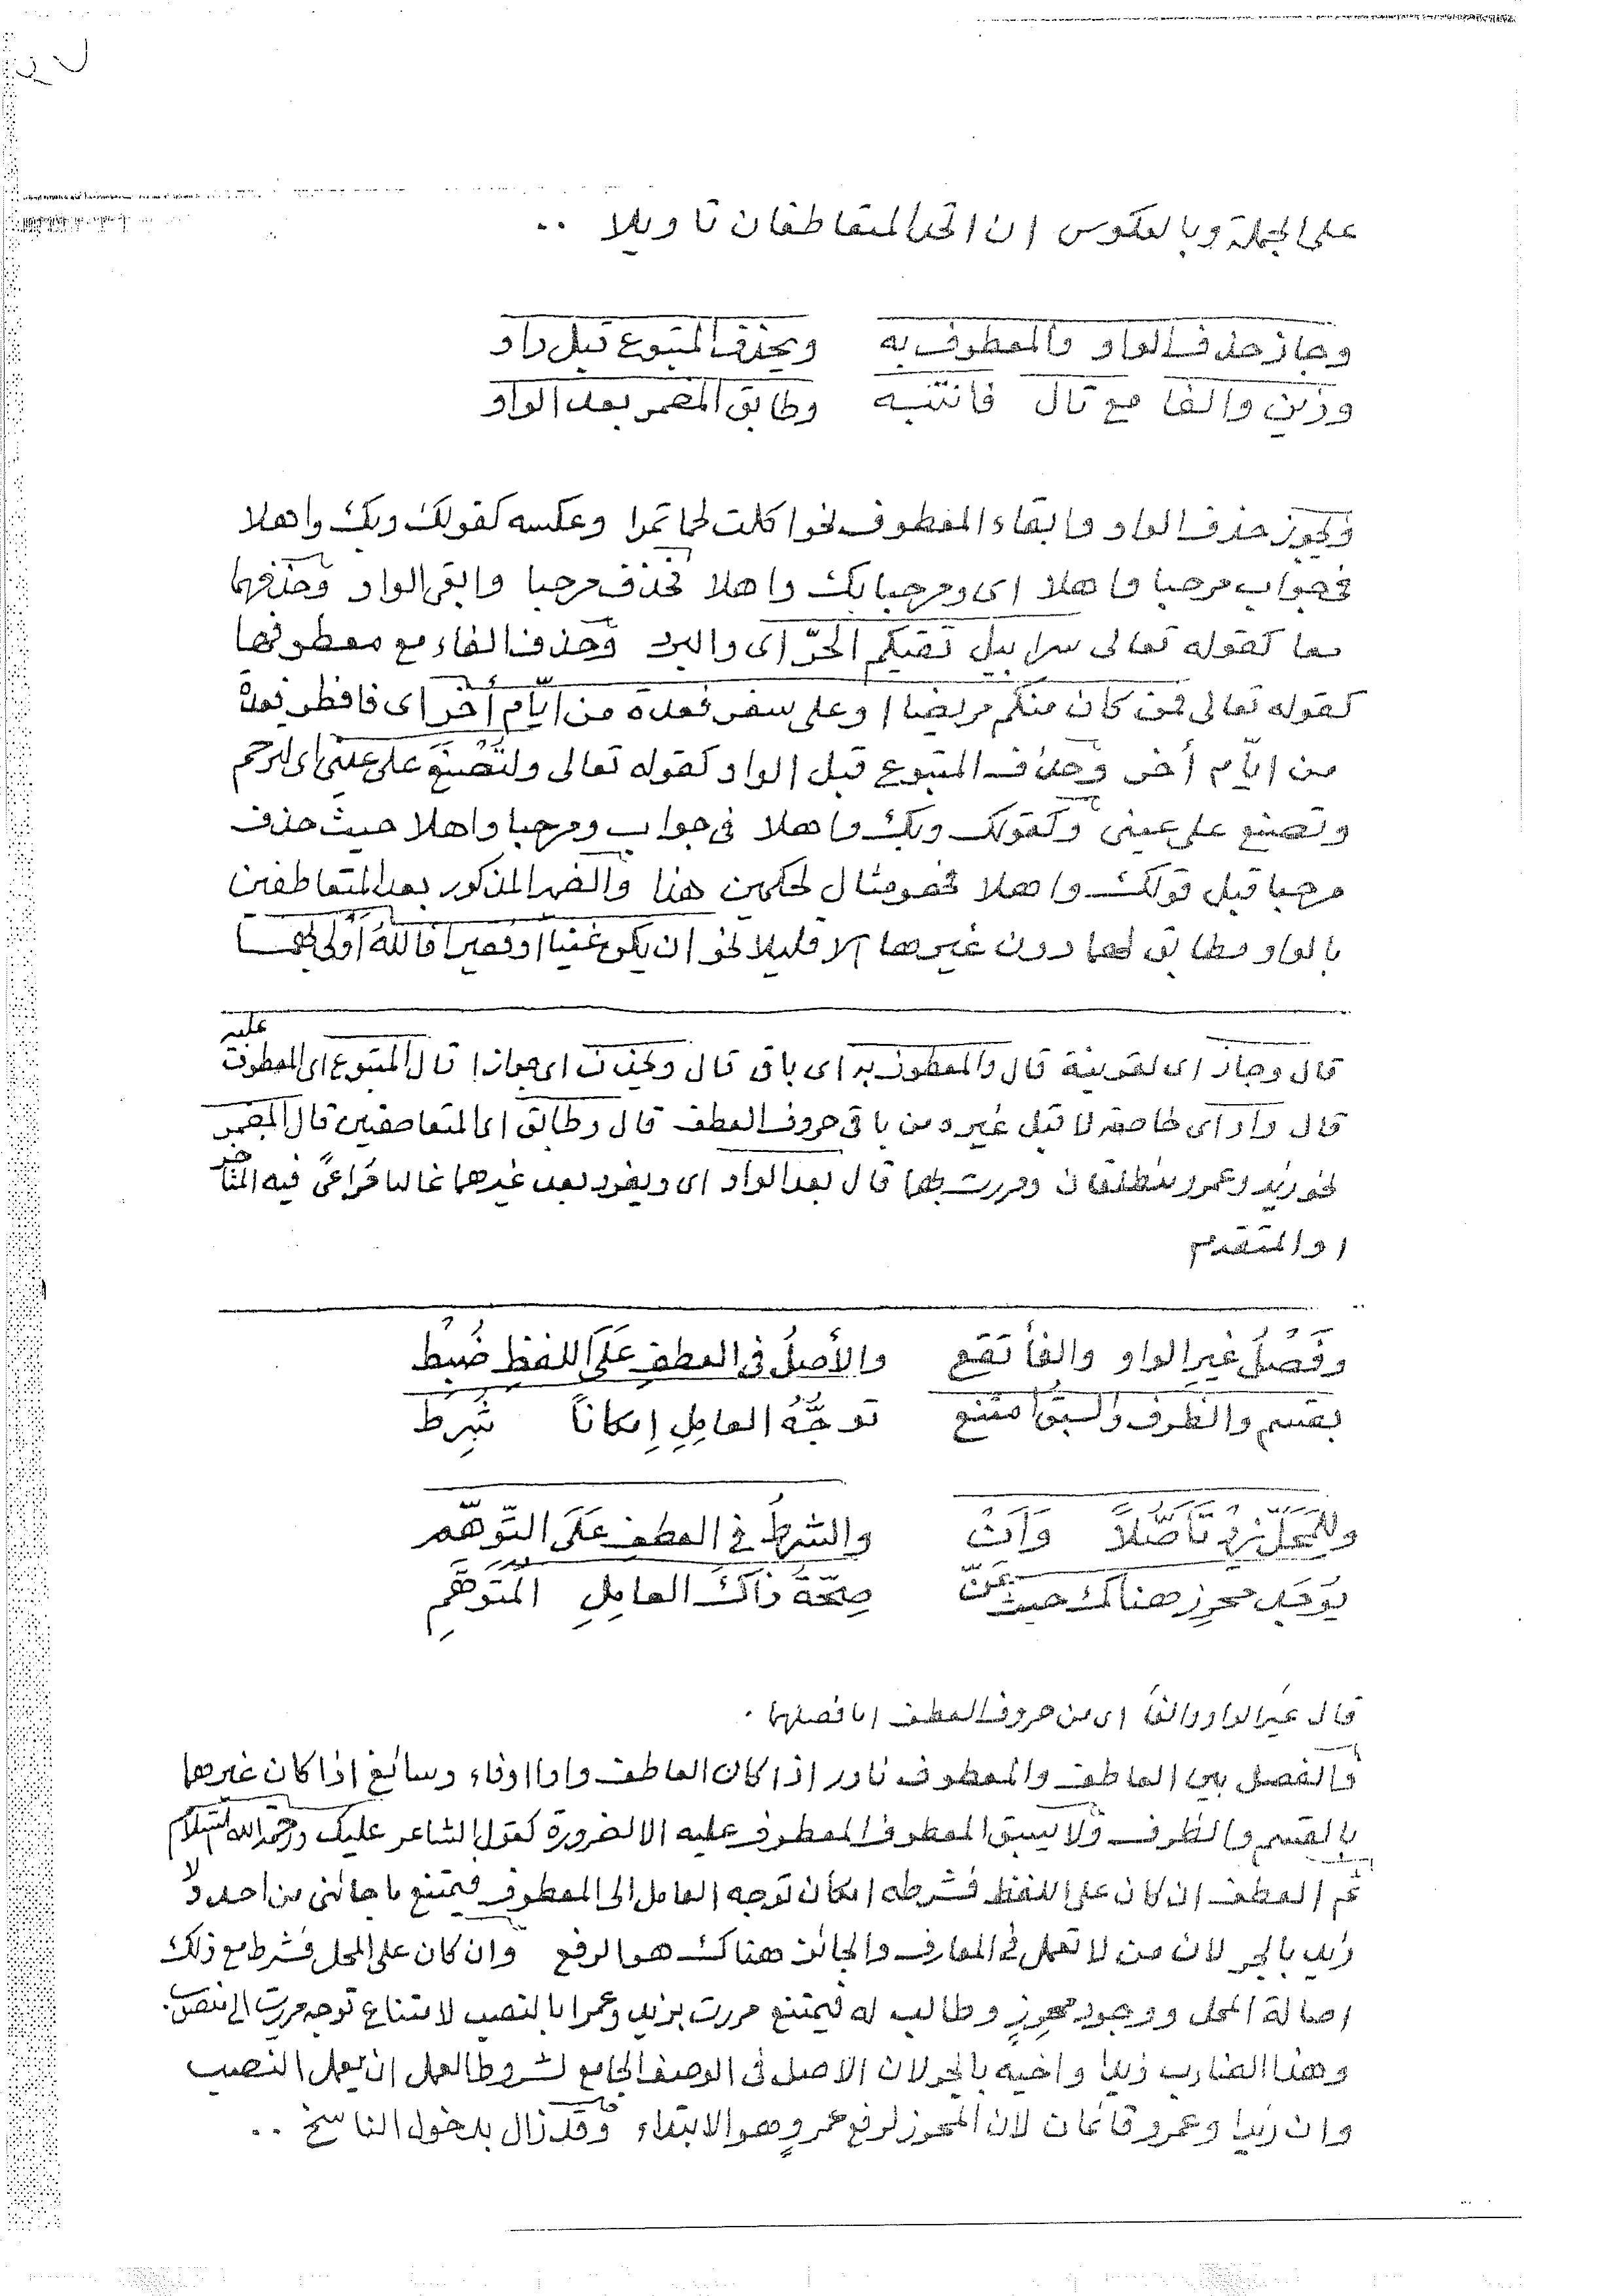 على الجملة وبالعكوس ان اتحد المتعاطفان تاويلا ..
وجاز حذف الواو والمعطوف به ويحذف المتبوع قبل واو
وزين والفا مع تال فانتبه وطابق المضمر بعد الواو
ويجوز حذف الواو وابقاء المعطوف نحو اكلت لحما تمرا وعكسه كقولك وبك واهلا
في جواب مرحبا واهلا اى ومرحبا بك واهلا فحذف مرحبا وابقى الواو وحذفهما
معا كقوله تعالى سرابيل تقيكم الحرّ اى والبرد وحذف الفاء مع معطوفها
كقوله تعالى فمن كان منكم مريضا او على سفر فعدة من ايّام أخر اى فافطر فعدةٌ
من ايّام أخر وحذف المتبوع قبل الواو كقوله تعالى ولتُصْنَعَ على عيني اى لترحم
وتصنع على عينى وكقولك وبك واهلا فى جواب ومرحبا واهلا حيث حذف
مرحبا قبل قولك واهلا فهو مثال لحكمين هذا والضمير المذكور بعد المتعاطفين
بالواو مطابق لهما دون غيرها الا قليلا نحو ان يكن غنيا او فقيرا فالله أولى بهما
قال وجاز اى لقرينة قال والمعطوف به اى باق قال ويحذف اى جوازا قال المتبوع اى المعطوف عليه
قال واو اى خاصة لا قبل غيره من باقى حروف العطف قال وطابق اى المتعاطفين قال المضمر
نحو زيد وعمرو منطلقان ومررت بهما قال بعد الواو اى ويفرد بعد غيرهما غالبا فراعىً فيه المتأخر
او المتقدم
وفَصْلُ غيرِ الواو والفا تقع والأصلُ فى العطفِ عَلَى اللفظِ ضُبِط
بقسم والظرف والسبقُ امتنع توجُّهُ العامِلِ اِمكاناً شُرِط
وللمَحَلِّ زِدْ تَأَصُّلاً وَأَنْ والشرطُ فى العطفِ عَلَى التَّوَهُّم
يُوجَد محرِز هناك حيث عَنّ صِحَّةُ ذاك العامِلِ المُتَوَهَّمِ
قال غير الواو والفا اى من حروف العطف اما فصلهما .
والفصل بين العاطف والمعطوف نادر اذا كان العاطف واوا او فاء وسائغ اذا كان غيرهما
بالقسم والظرف ولا يسبق المعطوف المعطوف عليه الا لضرورة كقول الشاعر عليك ورحمة الله السّلام
ثم العطف ان كان على اللفظ فشرطه امكان توجه العامل الى المعطوف فيمتنع ما جائنى من احد ولا
زيد بالجر لان من لا تعمل فى المعارف والجائز هناك هو الرفع وان كان على المحل فشرط مع ذلك
اصالة المحل ووجود محرِزٍ وطالب له فيمتنع مررت بزيد وعمرا بالنصب لامتناع توجه مررت الى نصب
وهذا الضارب زيدا واخيه بالجر لان الاصل فى الوصف الجامع لشروط العمل ان يعمل النصب
وان زيدا وعمرو قائمان لان المحرز لرفع عمروٍ هو الابتداء وقد زال بدخول الناسخ ..